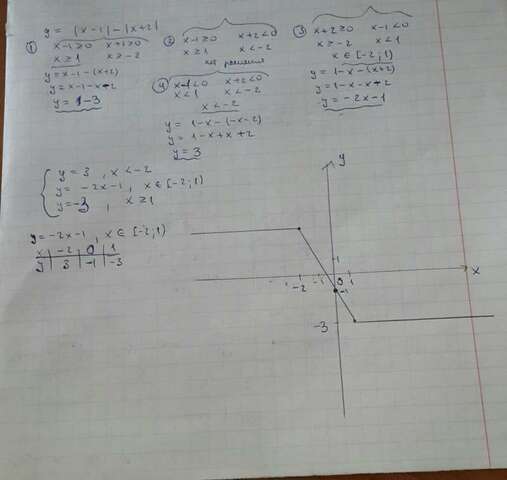 y = |x-1| - |x+2|
① x-1≥0 x+2≥0
x≥1 x≥-2
y=x-1-(x+2)
y=x-1-x-2
y=-3
② x-1≥0 x+2<0
x≥1 x<-2
нет решения
③ x+2≥0 x-1<0
x≥-2 x<1
x∈[-2;1)
y=1-x-(x+2)
y=1-x-x-2
y=-2x-1
④ x-1<0 x+2<0
x<1 x<-2
x<-2
y=1-x-(-x-2)
y=1-x+x+2
y=3
y=3, x<-2
y=-2x-1, x∈[-2;1)
y=-3, x≥1
y=-2x-1, x∈[-2;1)
x -2 0 1
y 3 -1 -3
y
1
-2 -1 0 1 x
-1
-3